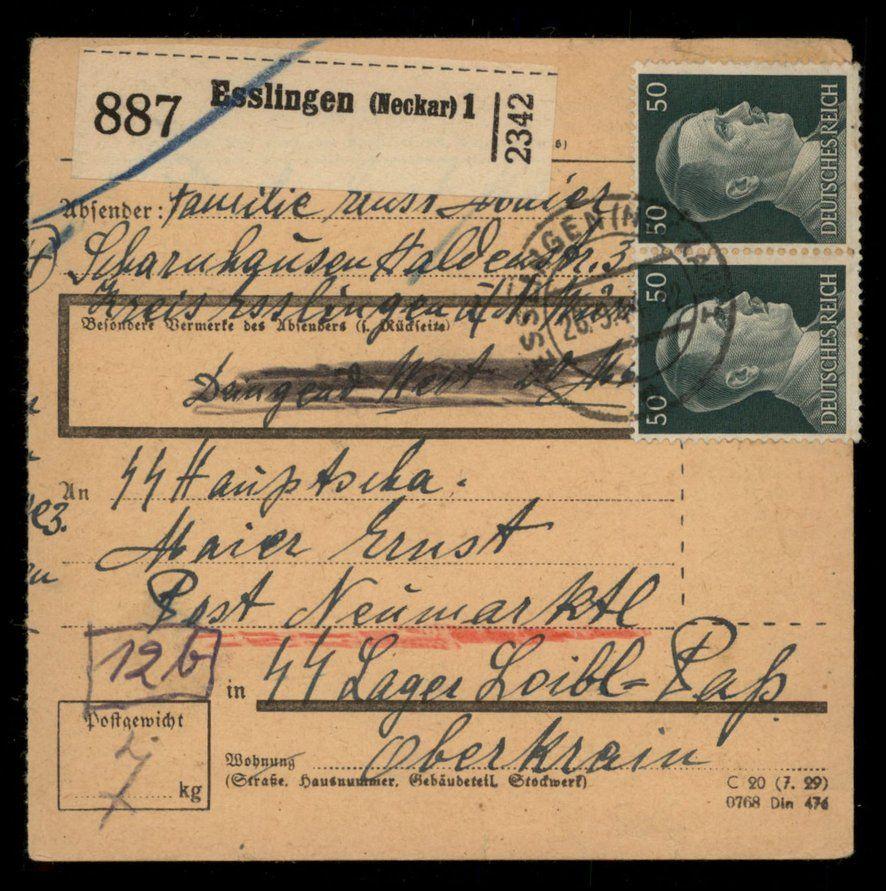 887
Esslingen (Neckar) 1
2342
50 DEUTSCHES REICH
50
50 DEUTSCHES REICH
50
Absender: Familie Ernst
Scharnhausen Haldenstr. 3
Kreis Esslingen a/N
ESSLINGEN (N
26.
Besondere Vermerke des Absenders (s. Rückseite)
Dringend Wert
An SS Hauptscha.
Maier Ernst
Post Neumarktl
12b
in SS Lager Loibl-Paß
Oberkrain
Postgewicht
7 kg
Wohnung
(Straße, Hausnummer, Gebäudeteil, Stockwerk)
C 20 (7. 29)
0768 Din 476